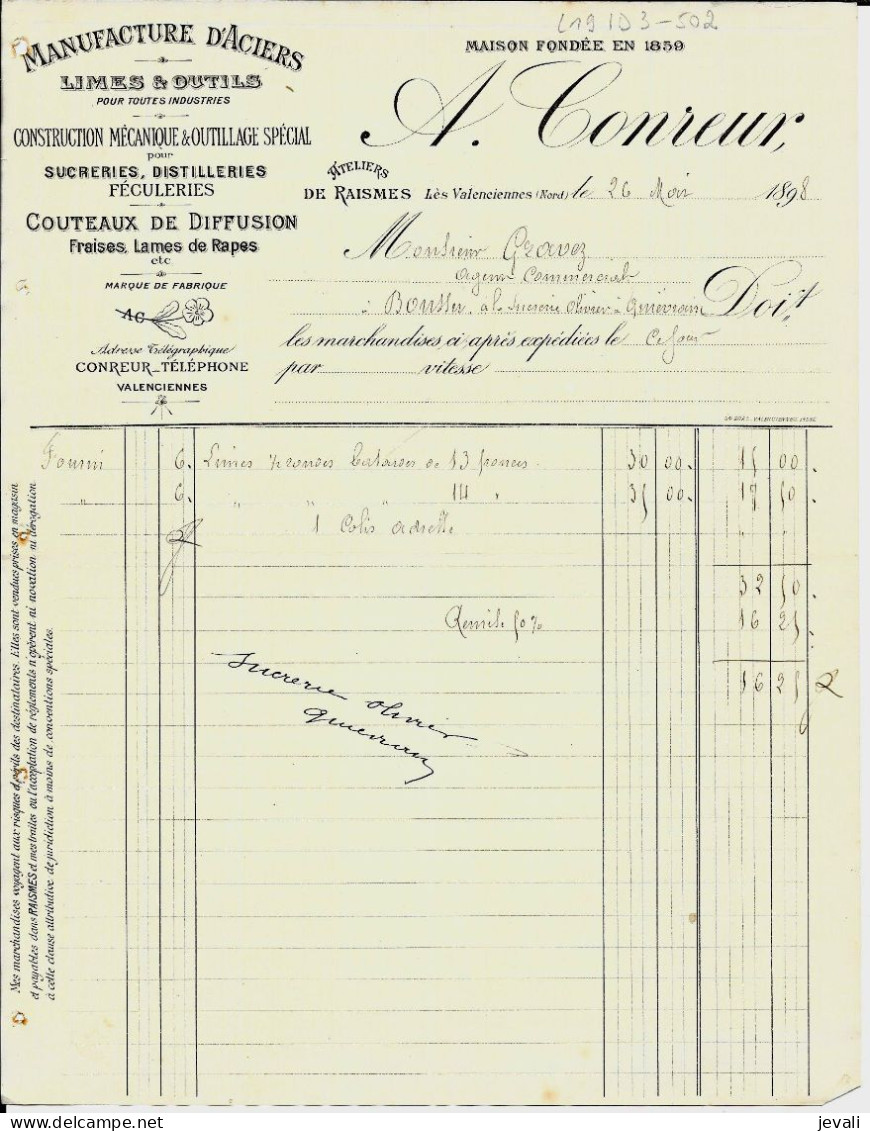 L19 1D3-502
MANUFACTURE D'ACIERS
LIMES & OUTILS
POUR TOUTES INDUSTRIES
CONSTRUCTION MÉCANIQUE & OUTILLAGE SPÉCIAL
pour
SUCRERIES, DISTILLERIES
FÉCULERIES
COUTEAUX DE DIFFUSION
Fraises, Lames de Rapes
etc
MARQUE DE FABRIQUE
AC
Adresse Télégraphique
CONREUR_TÉLÉPHONE
VALENCIENNES
MAISON FONDÉE EN 1859
A. Conreur,
ATELIERS
DE RAISMES Lès Valenciennes (Nord) le 26 Mai 1898
Monsieur Gravez
agent Commercial
à Boussu, a la Sucrerie Olivier à Quiévrain Doit,
les marchandises ci après expédiées le Ce Jour
par vitesse
Fourni 6. Limes rondes batardes de 13 pouces 30 00. 15 00.
" 6. " " " 14 " 35 00. 17 50.
1 Colis adresse " "
32 50
Remise 50% 16 25
16 25
Sucrerie Olivier
Quievrain
Mes marchandises voyagent aux risques & périls des destinataires. Elles sont vendues prises en magasin
et payables dans RAISMES et mes traites ou l'acceptation de réglements n'opèrent ni novation ni dérogation
à cette clause attributive de juridiction à moins de conventions spéciales.
jevali